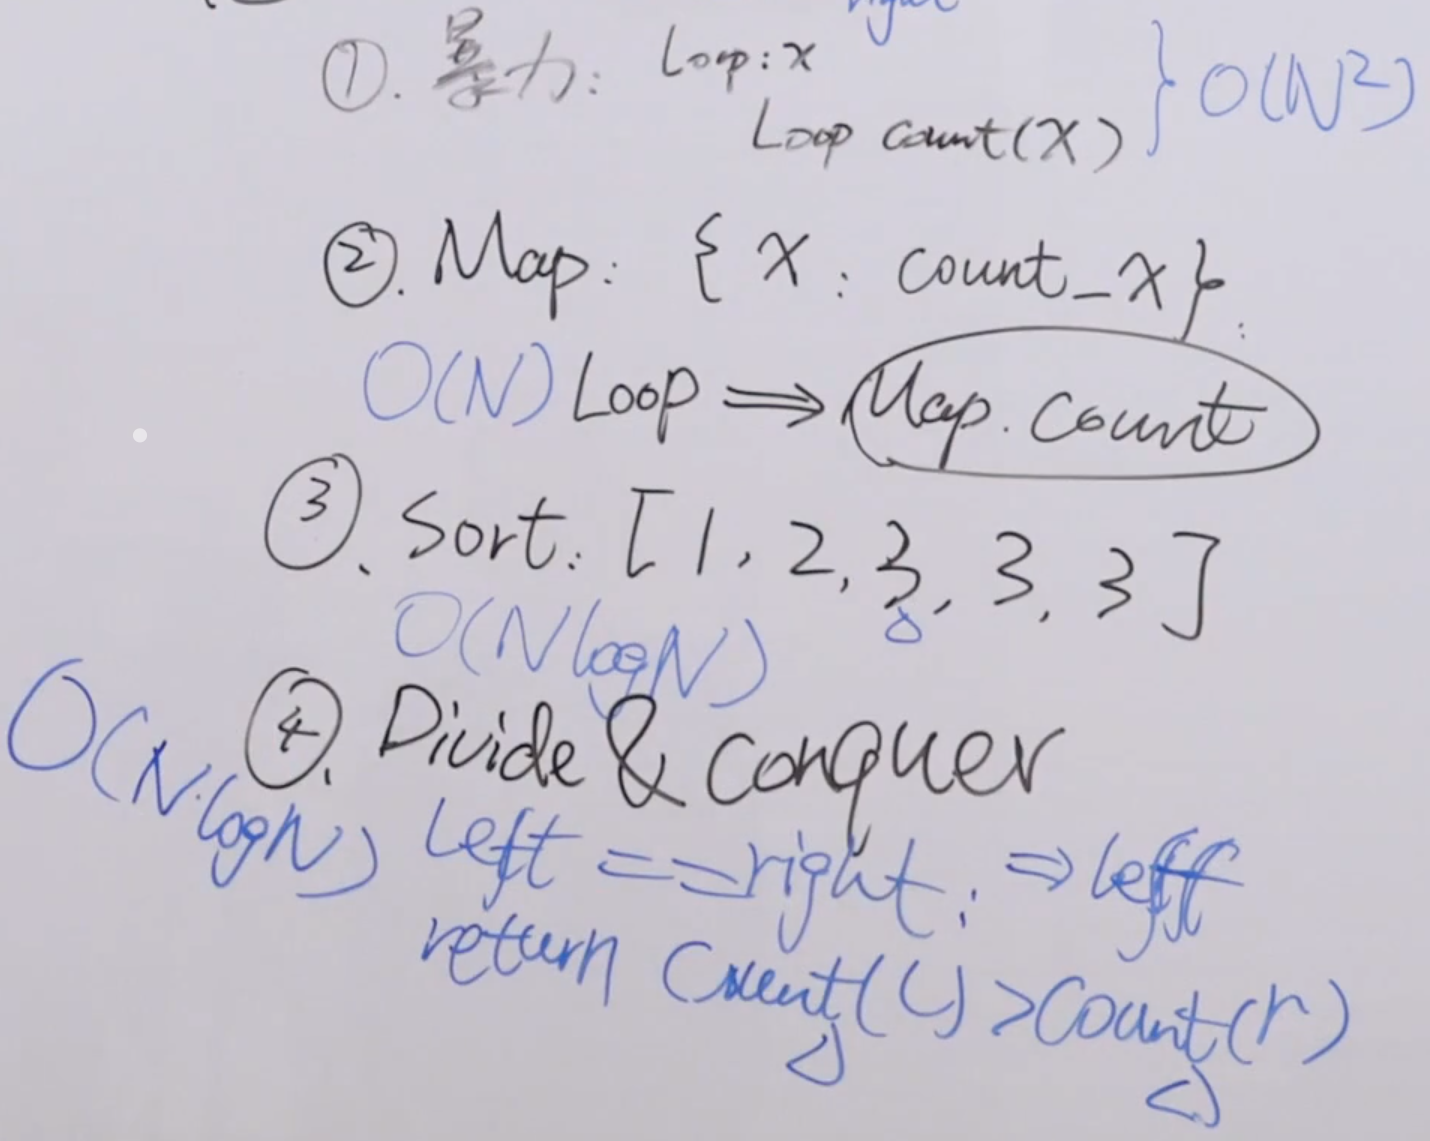 right
①. 暴力: Loop: x } O(N²)
Loop count(x)
②. Map: { x : count_x}.
O(N) Loop ⇒ Map.count
③. Sort: [1, 2, 3, 3, 3]
O(NlogN)
④. Divide & conquer
O(N·logN) left == right: ⇒ left
return Count(L) > Count(r)